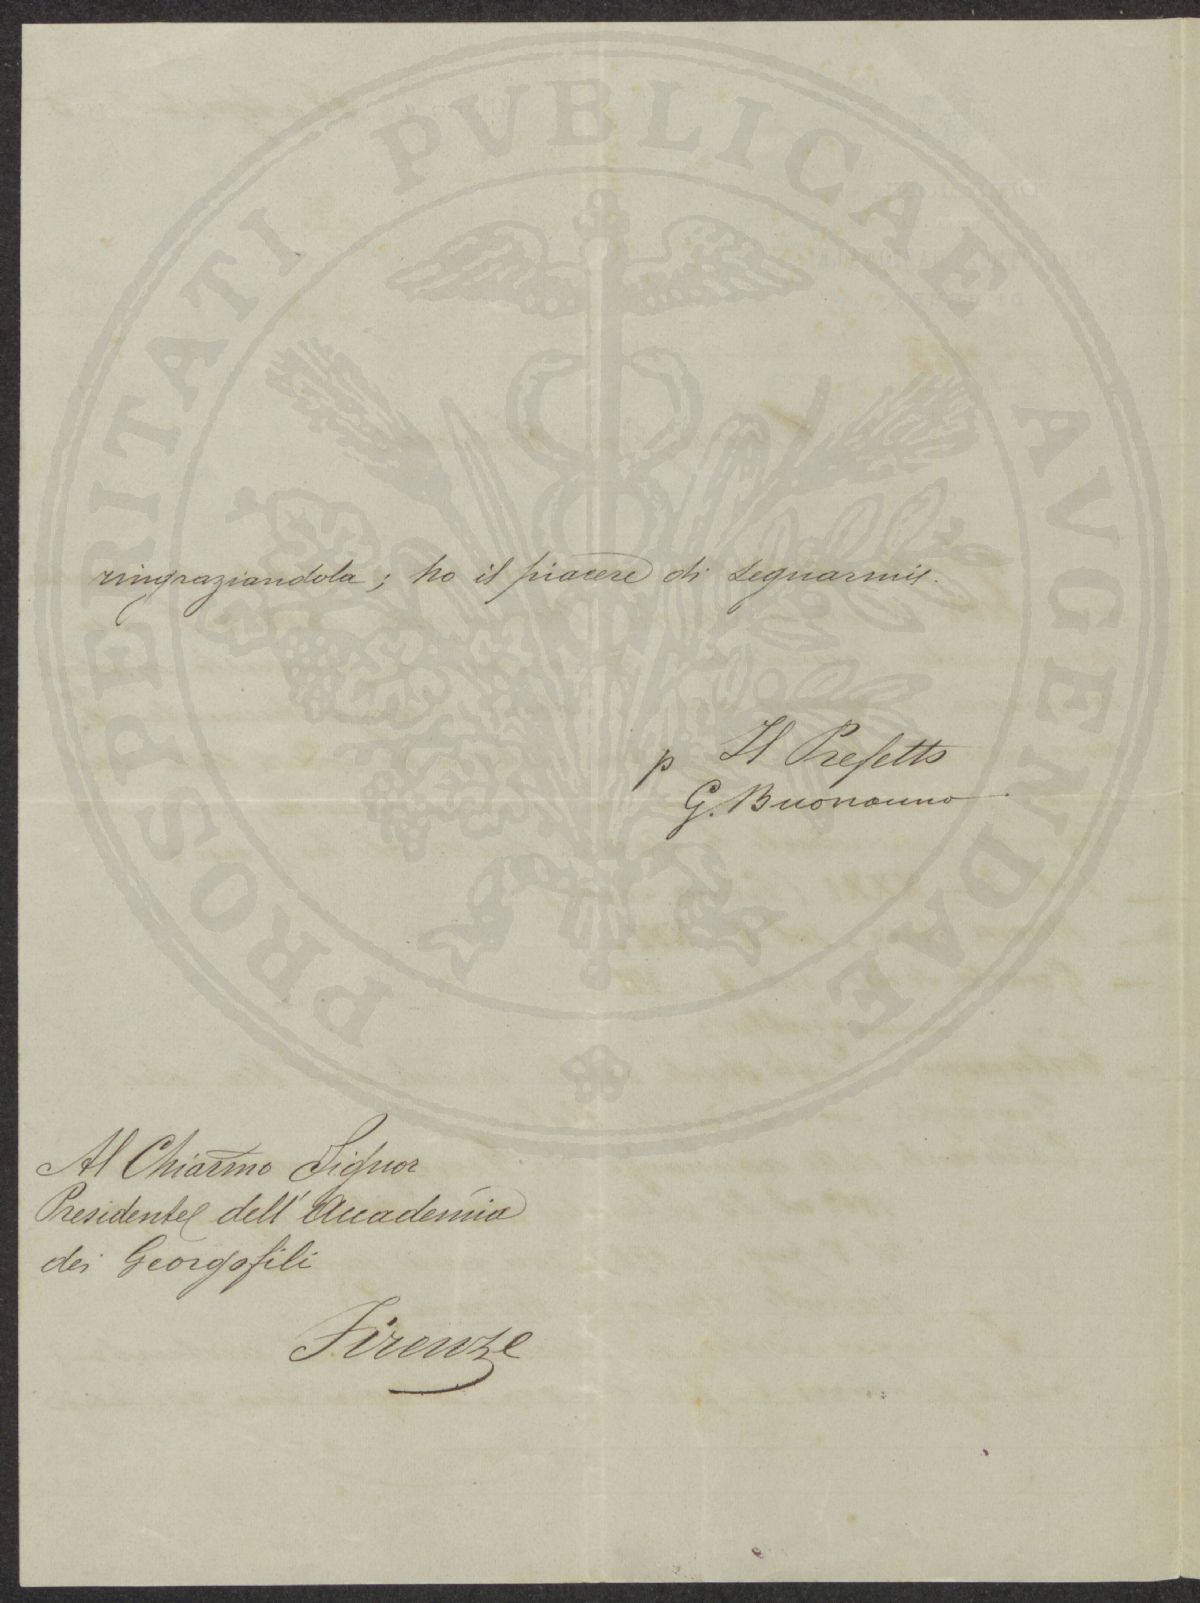 PROSPERITATI PVBLICAE AVGENDAE
ringraziandola; ho il piacere di segnarmi.
p Il Prefetto
G. Buonanno
Al Chiarmo Signor
Presidente dell'Accademia
dei Georgofili
Firenze